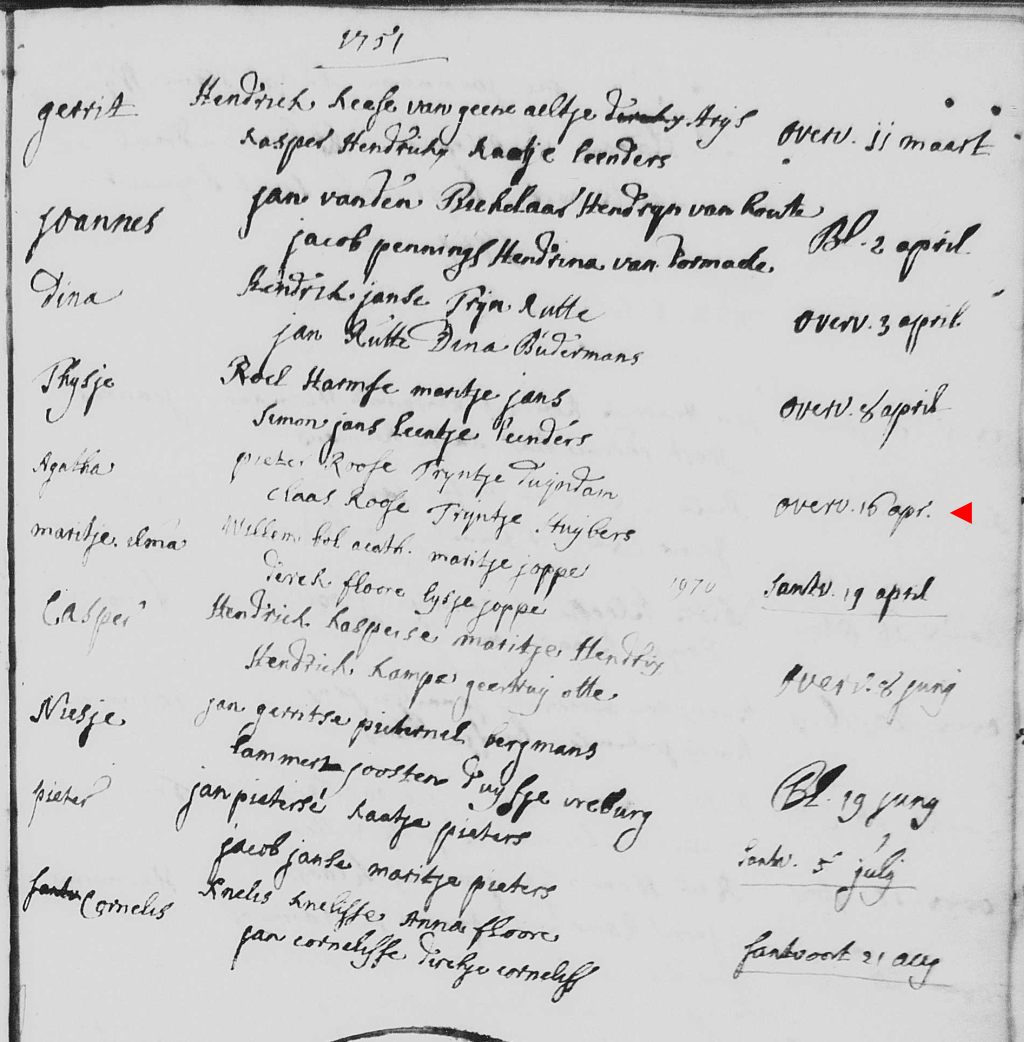 1751
gerrit Hendrick Keese van geene aeltje direkx Arijs overv. 11 maart
Kasper Hendrickx Kaatje leenders
joannes jan vanden Beekelaar Hendryn van houte Bl. 2 april
jacob pennings Hendrina van Dormaele
Dina Hendrik janse Tryn Rutte overv. 3 april
jan Rutte Dina Budermans
Thysje Roel Harmse maritje jans overv. 8 april
Simon jans leentje leenders
Agatha pieter Roose Tryntje Duyndam overv. 16 apr.
Claas Roose Tryntje Huybers
maritje. Willem bol acath. maritje joppe Santv. 19 april
direk floore lysje joppe 1970
Casper Hendrick Kasperse maritje Hendrix overv. 8 juny
Hendrick Kampe geertruy otte
Niesje jan gerritse pieternel bergmans Bl. 19 juny
lammert joosten duyfje vreburg
pieter jan pieterse Kaatje pieters Santv. 5 july
jacob janse maritje pieters
Santv Cornelis Knelis Knelisse Anna floore Santvoort 21 aug
jan cornelisse direkje cornelisse